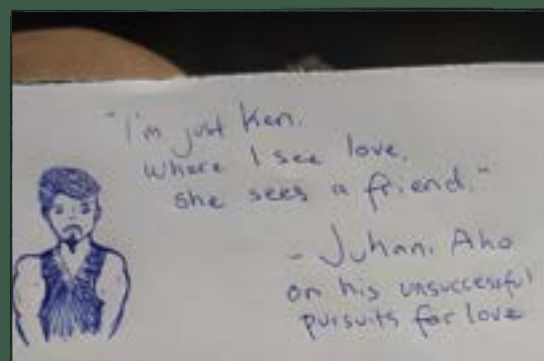 "I'm just Ken.
Where I see love,
she sees a friend."
- Juhani Aho
on his unsuccessful
pursuits for love